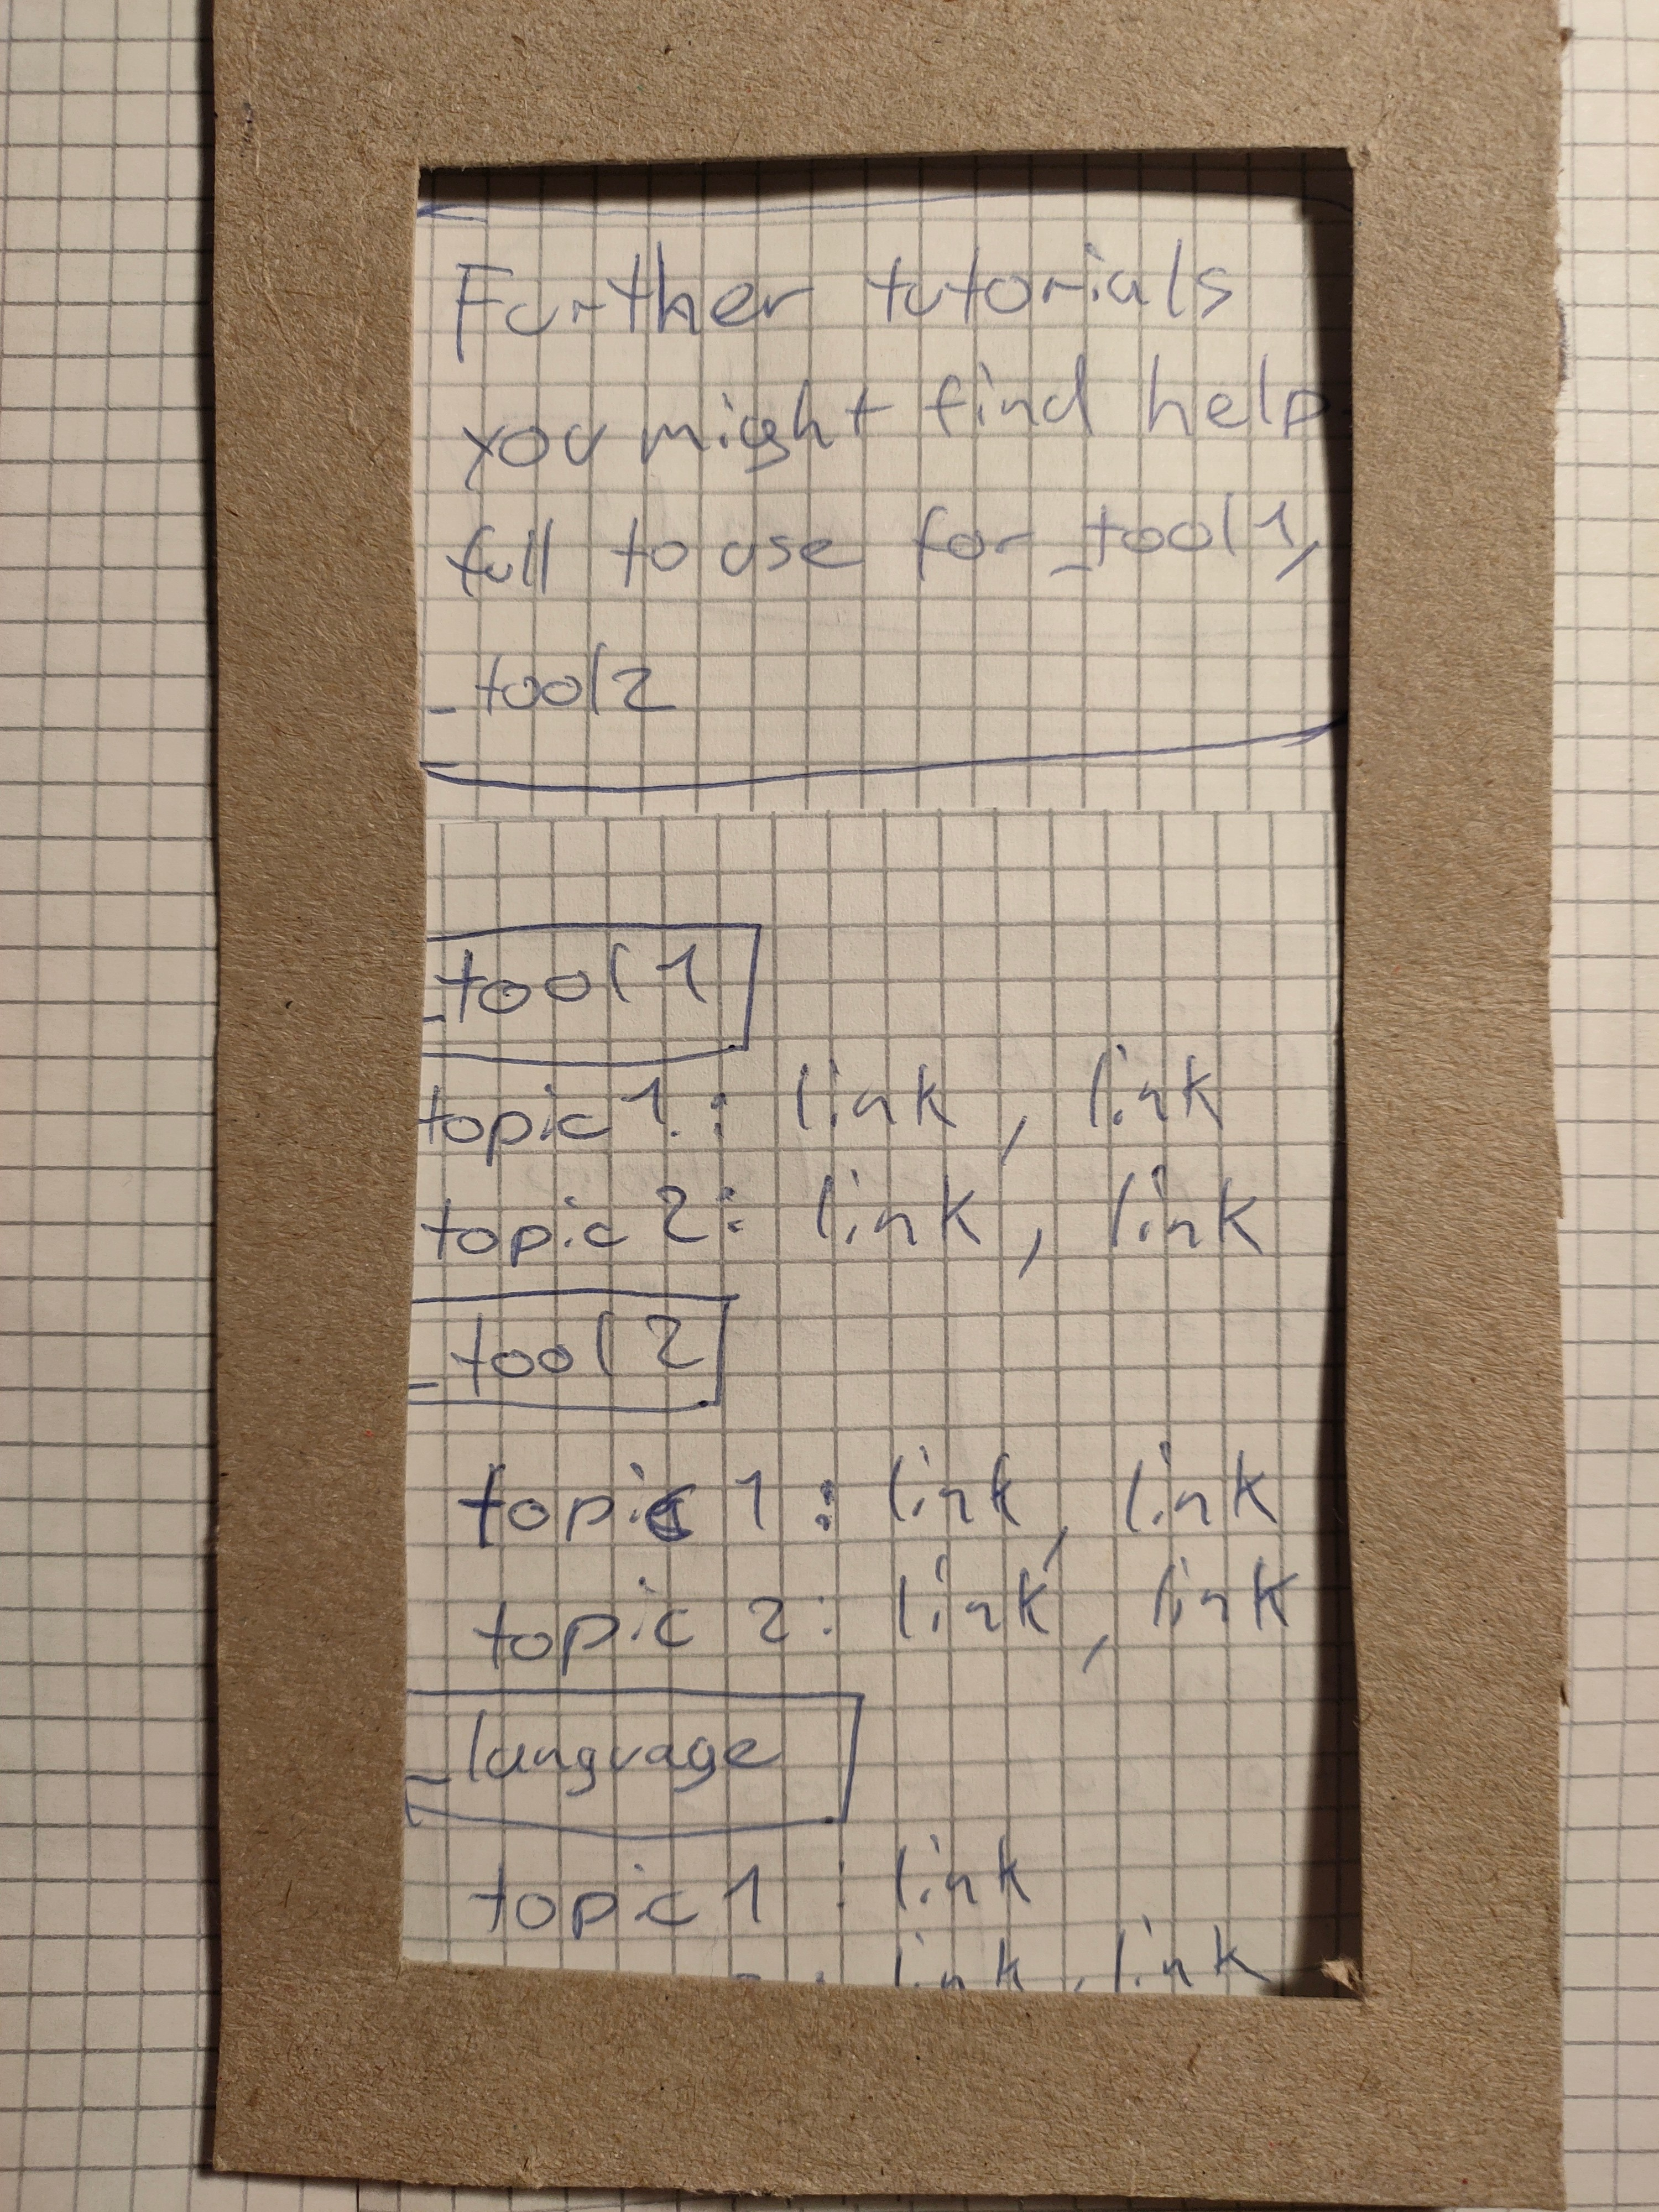 Further tutorials
you might find help
full to use for _tool1,
_tool2
_tool1
topic 1.: link, link
topic 2: link, link
_tool2
topic 1: link, link
topic 2: link, link
_language
topic 1: link
: link, link